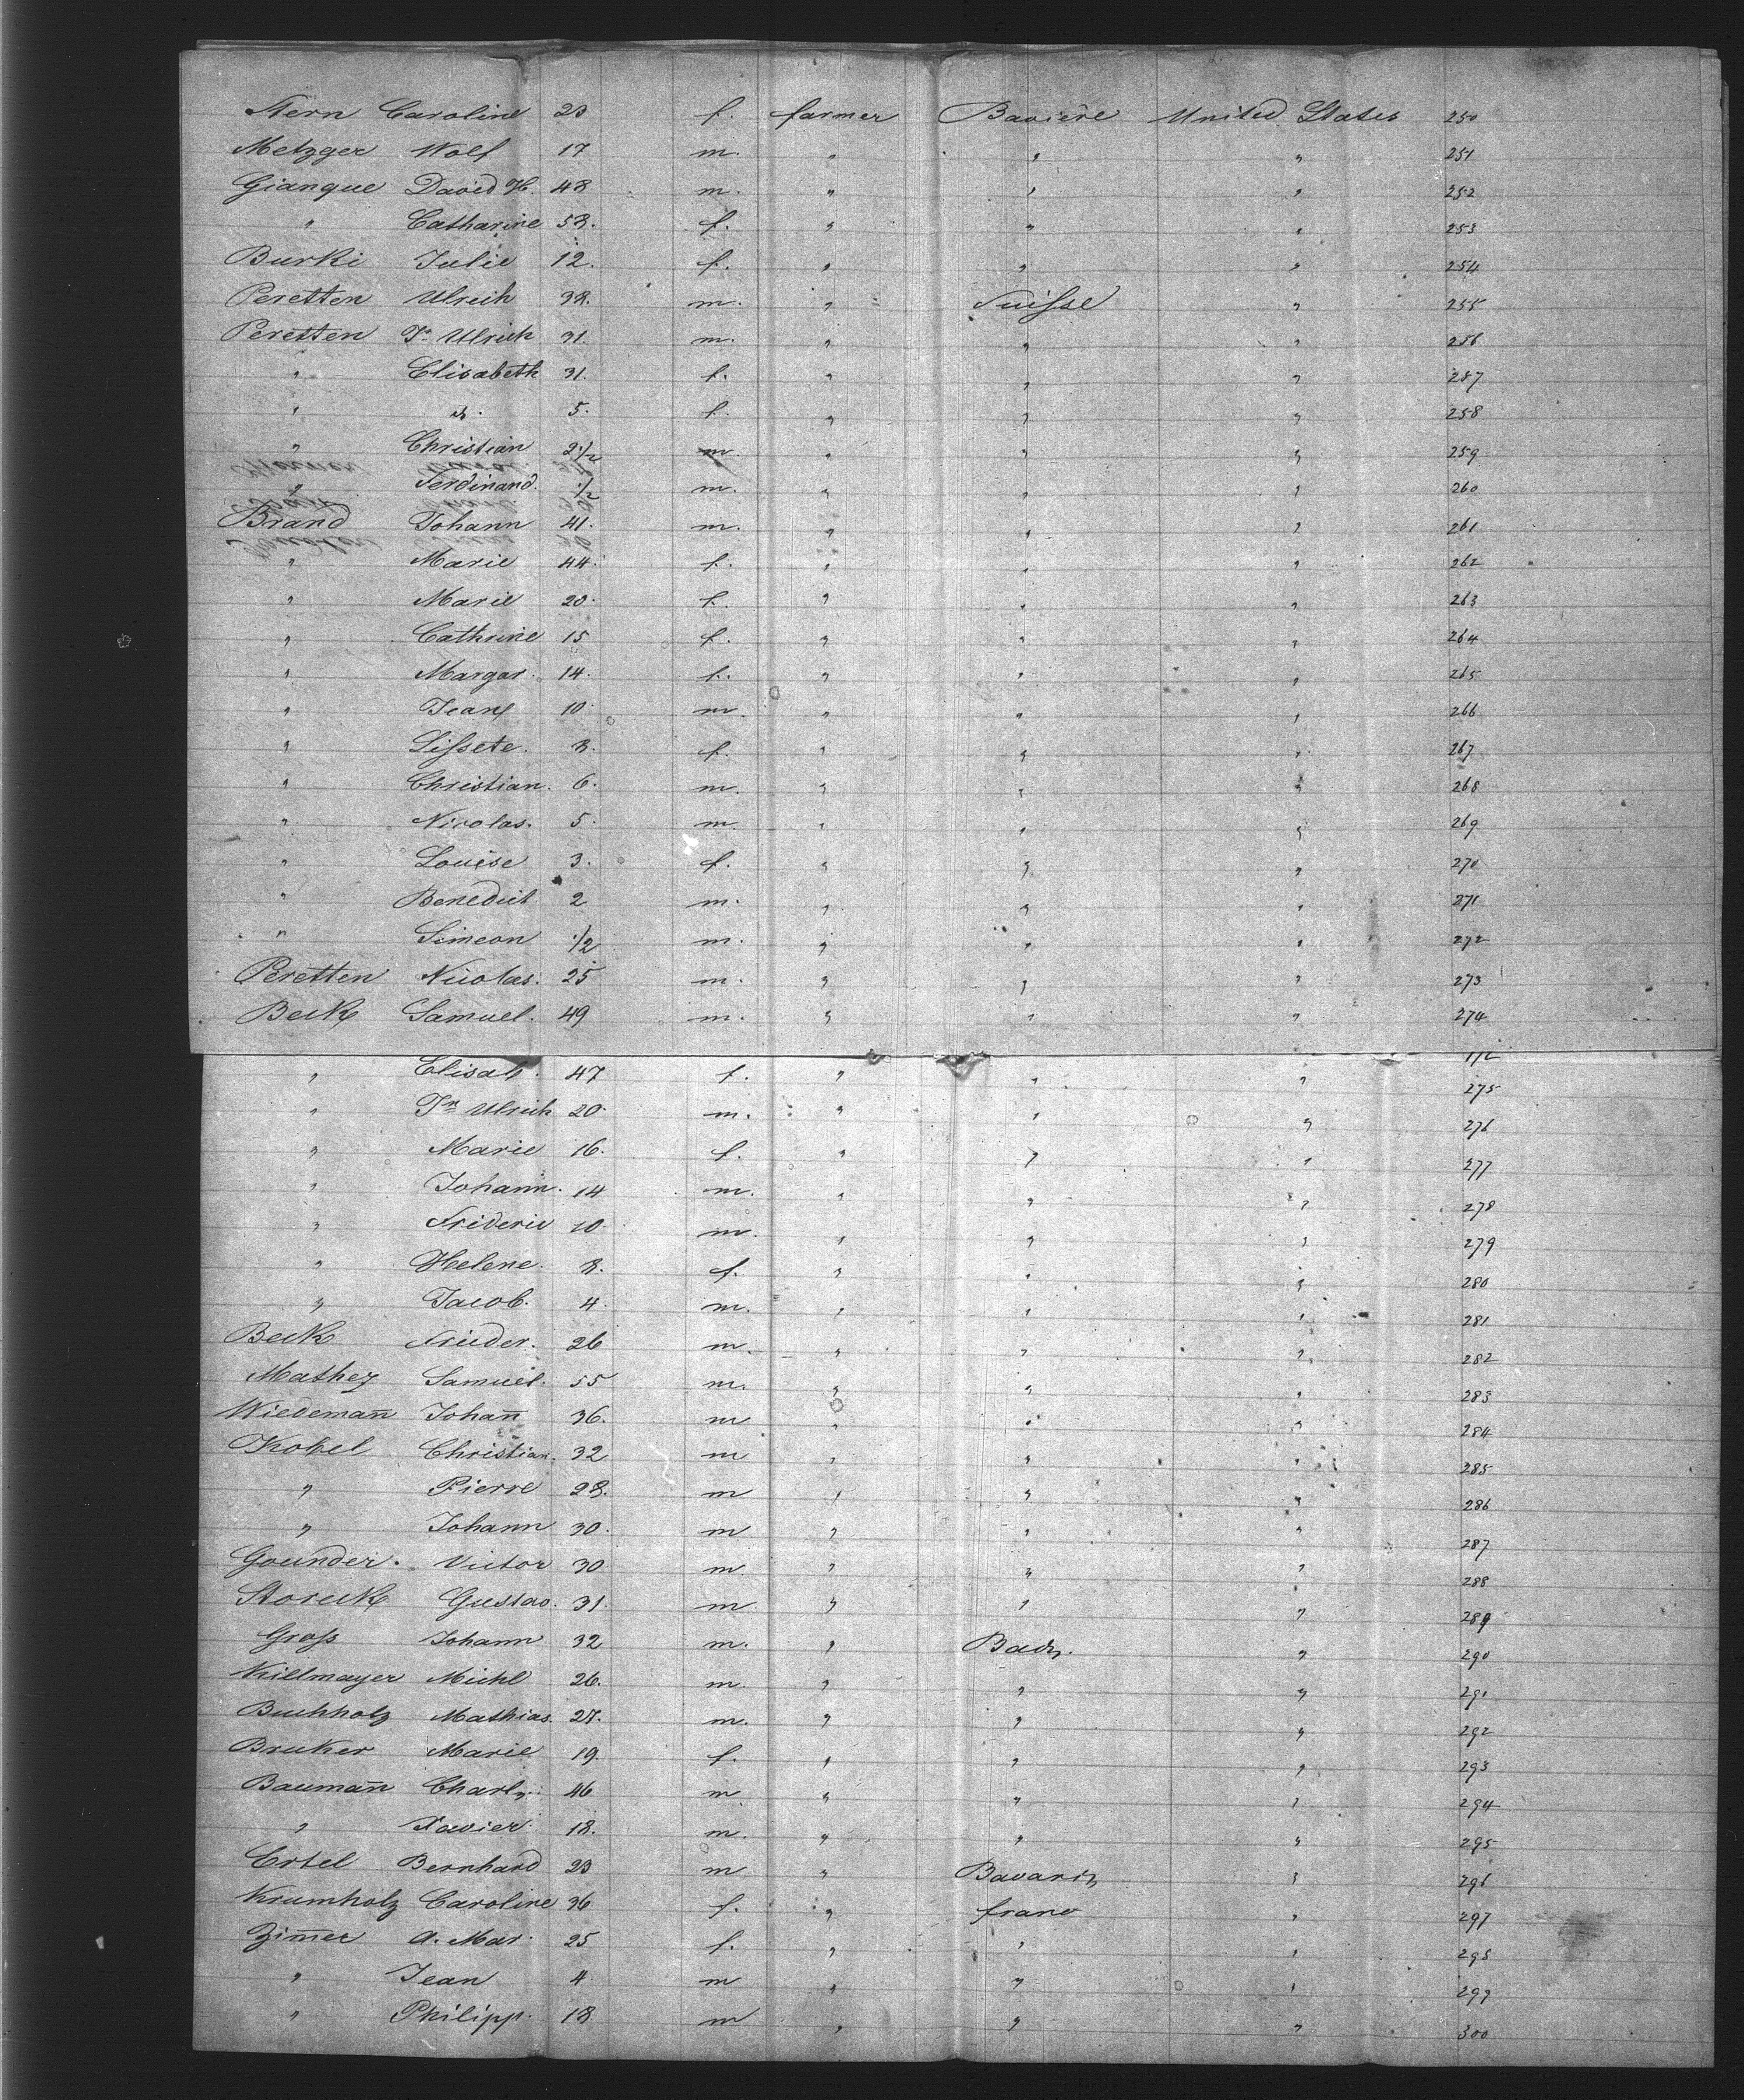 Stern Caroline 23 f. farmer Bavière United States 250
Metzger Wolf 17 m. " " " 251
Gianque David H. 48 m. " " " 252
" Catharine 58. f. " " " 253
Burki Julie 12. f. " " " 254
Peretten Ulrich 38. m. " Suisse " 255
Peretten Jn Ulrich 31. m. " " " 256
" Elisabeth 31. f. " " " 257
" d. 5. f. " " " 258
" Christian 2 1/2 m. " " " 259
" Ferdinand. 1/2 m. " " " 260
Brand Johann 41. m. " " " 261
" Marie 44. f. " " " 262
" Marie 20. f. " " " 263
" Cathrine 15 f. " " " 264
" Margar. 14. f. " " " 265
" Jean 10. m. " " " 266
" Lissete. 8. f. " " " 267
" Christian. 6. m. " " " 268
" Nicolas. 5. m. " " " 269
" Louise 3. f. " " " 270
" Benedict 2 m. " " " 271
" Simeon 1/2 m. " " " 272
Peretten Nicolas. 25 m. " " " 273
Beck Samuel. 49 m. " " " 274
" Elisab. 47 f. " " " 275
" Jn Ulrich 20. m. " " " 276
" Marie 16. f. " " " 277
" Johann. 14 m. " " " 278
" Frideric 10. m. " " " 279
" Helene. 8. f. " " " 280
" Jacob. 4. m. " " " 281
Beck Frieder. 26 m. " " " 282
Mathey Samuel. 55 m. " " " 283
Wiedemañ Johañ 36. m " " " 284
Kohel Christian. 32 m " " " 285
" Pierre 28. m " " " 286
" Johann 30. m " " " 287
Gounder. Victor 30 m. " " " 288
Storeck Gustav. 31. m " " " 289
Gross Johann 32 m. " Bade. " 290
Killmayer Michl 26. m. " " " 291
Buchholz Mathias. 27. m. " " " 292
Bruker Marie 19. f. " " " 293
Baumañ Charles. 46 m. " " " 294
" Xavier. 18. m. " " " 295
Ertel Bernhard 23 m " Bavaria " 296
Krumholz Caroline 36 f. " franc " 297
Zim̄er A. Mar. 25 f. " " " 298
" Jean 4. m " " " 299
" Philipp. 18 m " " " 300